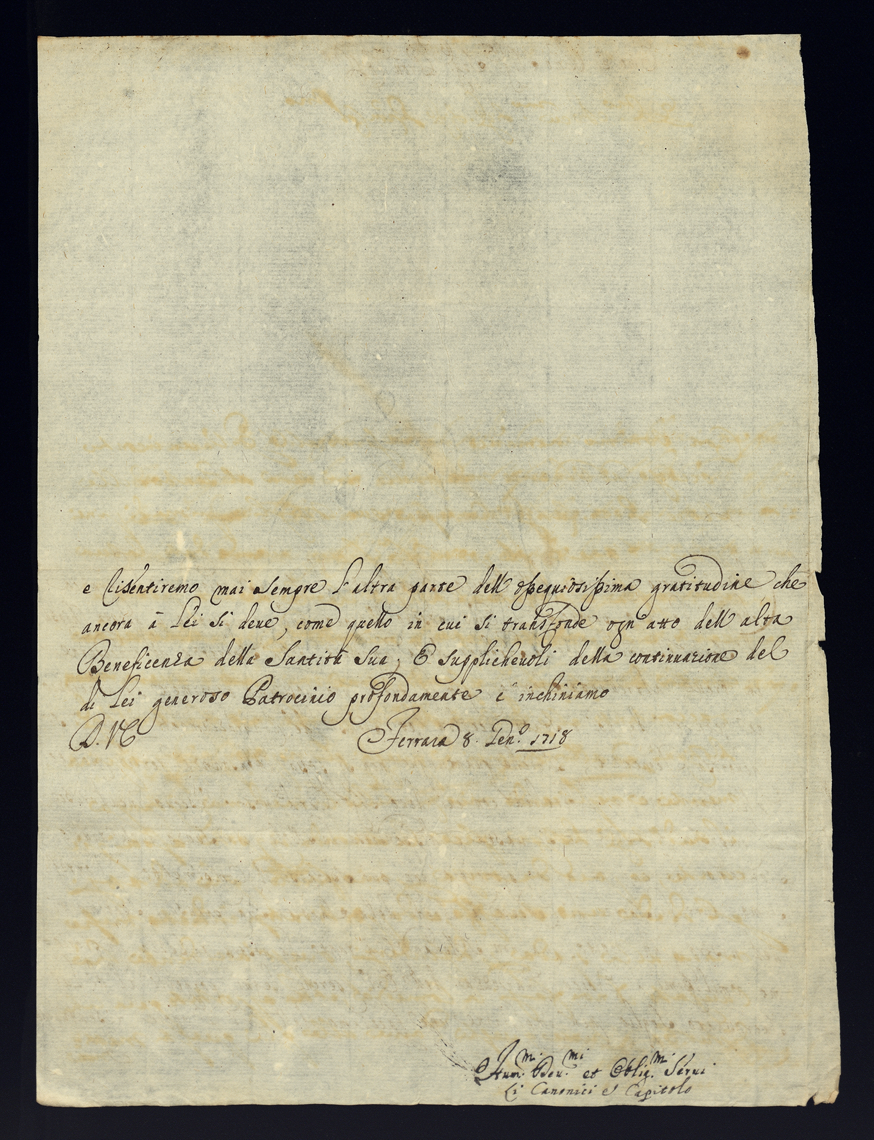 e risentiremo mai sempre l'altra parte dell'ossequiosissima gratitudine che
ancora à Lei si deve, come quello in cui si transfonde ogn'atto dell'alta
Beneficenza della Santità Sua; E supplichevoli della continuazione del
di Lei generoso Patrocinio profondamente c'inchiniamo
D. V. E.
Ferrara 8. Gen.º 1718
Hum.mi Dev.mi et Oblig.mi Servi
Li Canonici e Capitolo